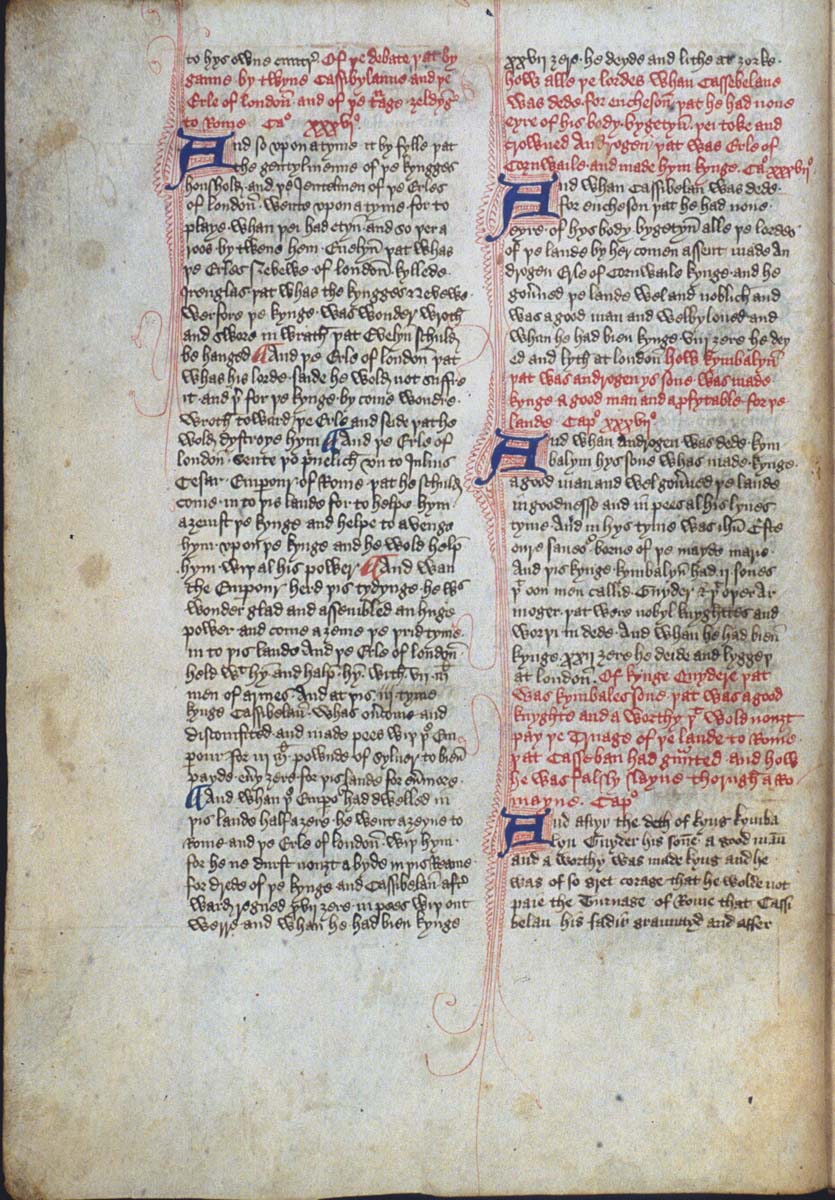 to hys owne cuntre Of þe debate þat by
ganne by twyne Cassibylanne and þe
Erle of london and of þe trage ȝeldyng
to Rome Cao xxxvio
And so vpon a tyme it by fylle þat
the gentylmenne of þe kyngges
houshold and þe Jentelmen of þe Erles
of london wente vpon a tyme for to
playe whan þei had etyn and so þer a
roos by twene hem Euelyn þat whas
þe Erles nevewe of london kyllede
Irenglas þat whas the kyngges nevewe
werfore þe kynge was wonder wroth
and swore in wrath þat Evelyn schuld
be hanged And þe Erle of london þat
whas his lorde saide he wold not suffre
it and þr for þe kynge by come wondre
wroth toward þe Erle and seide þat he
wold dystroye hym And þe Erle of
london sente þo priuelich vn to Julius
Cesar Emperour of Rome þat he schuld
come in to þis lande for to helpe hym
aȝeinst þe kynge and helpe to avenge
hym vpon þe kynge and he wold help
hym wiþ al his power And wan
the Emperour herd þis tydynge he was
wonder glad and assembled an huge
power and come aȝeine þe þrid tyme
in to þis lande And þe Erle of london
held wt hym and halp hym with vii ml
men of armes And at þis iii tyme
kynge Cassibelan whas ouercome and
discomfited and made pees wiþ þe Em
perour for iii ml pownde of syluer to bien
payde euery ȝere for þis lande for euermore
And whan þe Emperour had dwelled in
þis lande half a ȝere he went aȝeyne to
Rome and þe Erle of london wiþ hym
for he ne durst nouȝt abyde in þis Reame
for drede of þe kynge and Cassibelan after
ward regned xvii ȝere in pees wiþ out
werre and whan he had bien kynge
xxvii ȝere he deyde and lithe at ȝorke
how alle þe lordes whan Cassebelane
was dede for encheson þat he had none
eyre of his body bygetyn þei toke and
crowned Androgen þat was Erle of
Cornwaile and made hym kynge Cao xxxviio
And whan Cassibelan was dede
for encheson þat he had none
eyre of hys body bygetyn alle þe lordes
of þe lande by her comen assent made An
drogen Erle of Cornwaile kynge and he
gouerned þe lande wel and noblich and
was a good man and wel byloued and
whan he had bien kynge viii ȝere he dey
ed and lyth at london how kymbalyn
þat was androgenys sone was made
kynge a good man and a profytable for þe
lande Capo xxxviio
And whan Androgen was dede kym
balym hys sone whas made kynge
a good man and wel gouerned þe lande
in goodnesse and in pees al his lyues
tyme And in hys tyme was ihu Criste
oure saueor borne of þe mayde marie
And þis kynge kymbalyn had ii sones
þe oon men callid Guyder & þe oþer Ar
moger þat were nobyl knyghttes and
worþi in dede And whan he had bien
kynge xxii ȝere he deide and lyggeþ
at london Of kynge Guydere þat
was kymbales sone þat was a good
knyghte and a worthy þt wold nouȝt
pay þe Truage of þe lande to Rome
þat Casseban had graunted and how
he was falsly slayne thorugh a Ro
mayne Capo
And aftyr the deth of kyng kymba
lyn Guyder his sone a good man
and a worthy was made kyng and he
was of so gret corage that he wolde not
paie the Truuage of Rome that Cassi
belan his fadir graunted and affer